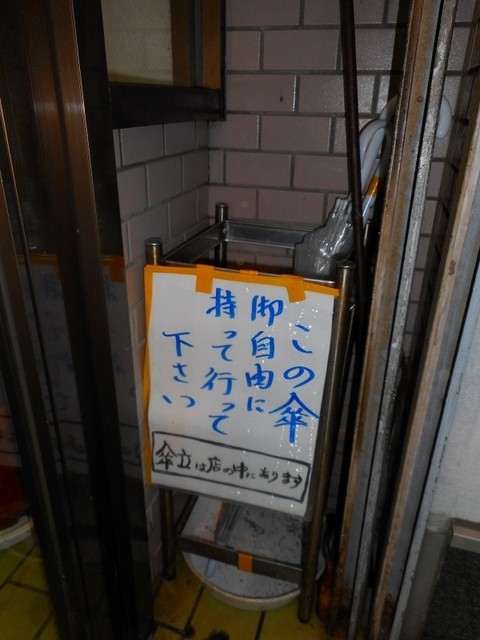 この傘
御自由に
持って行って
下さい
傘立は店の中にあります